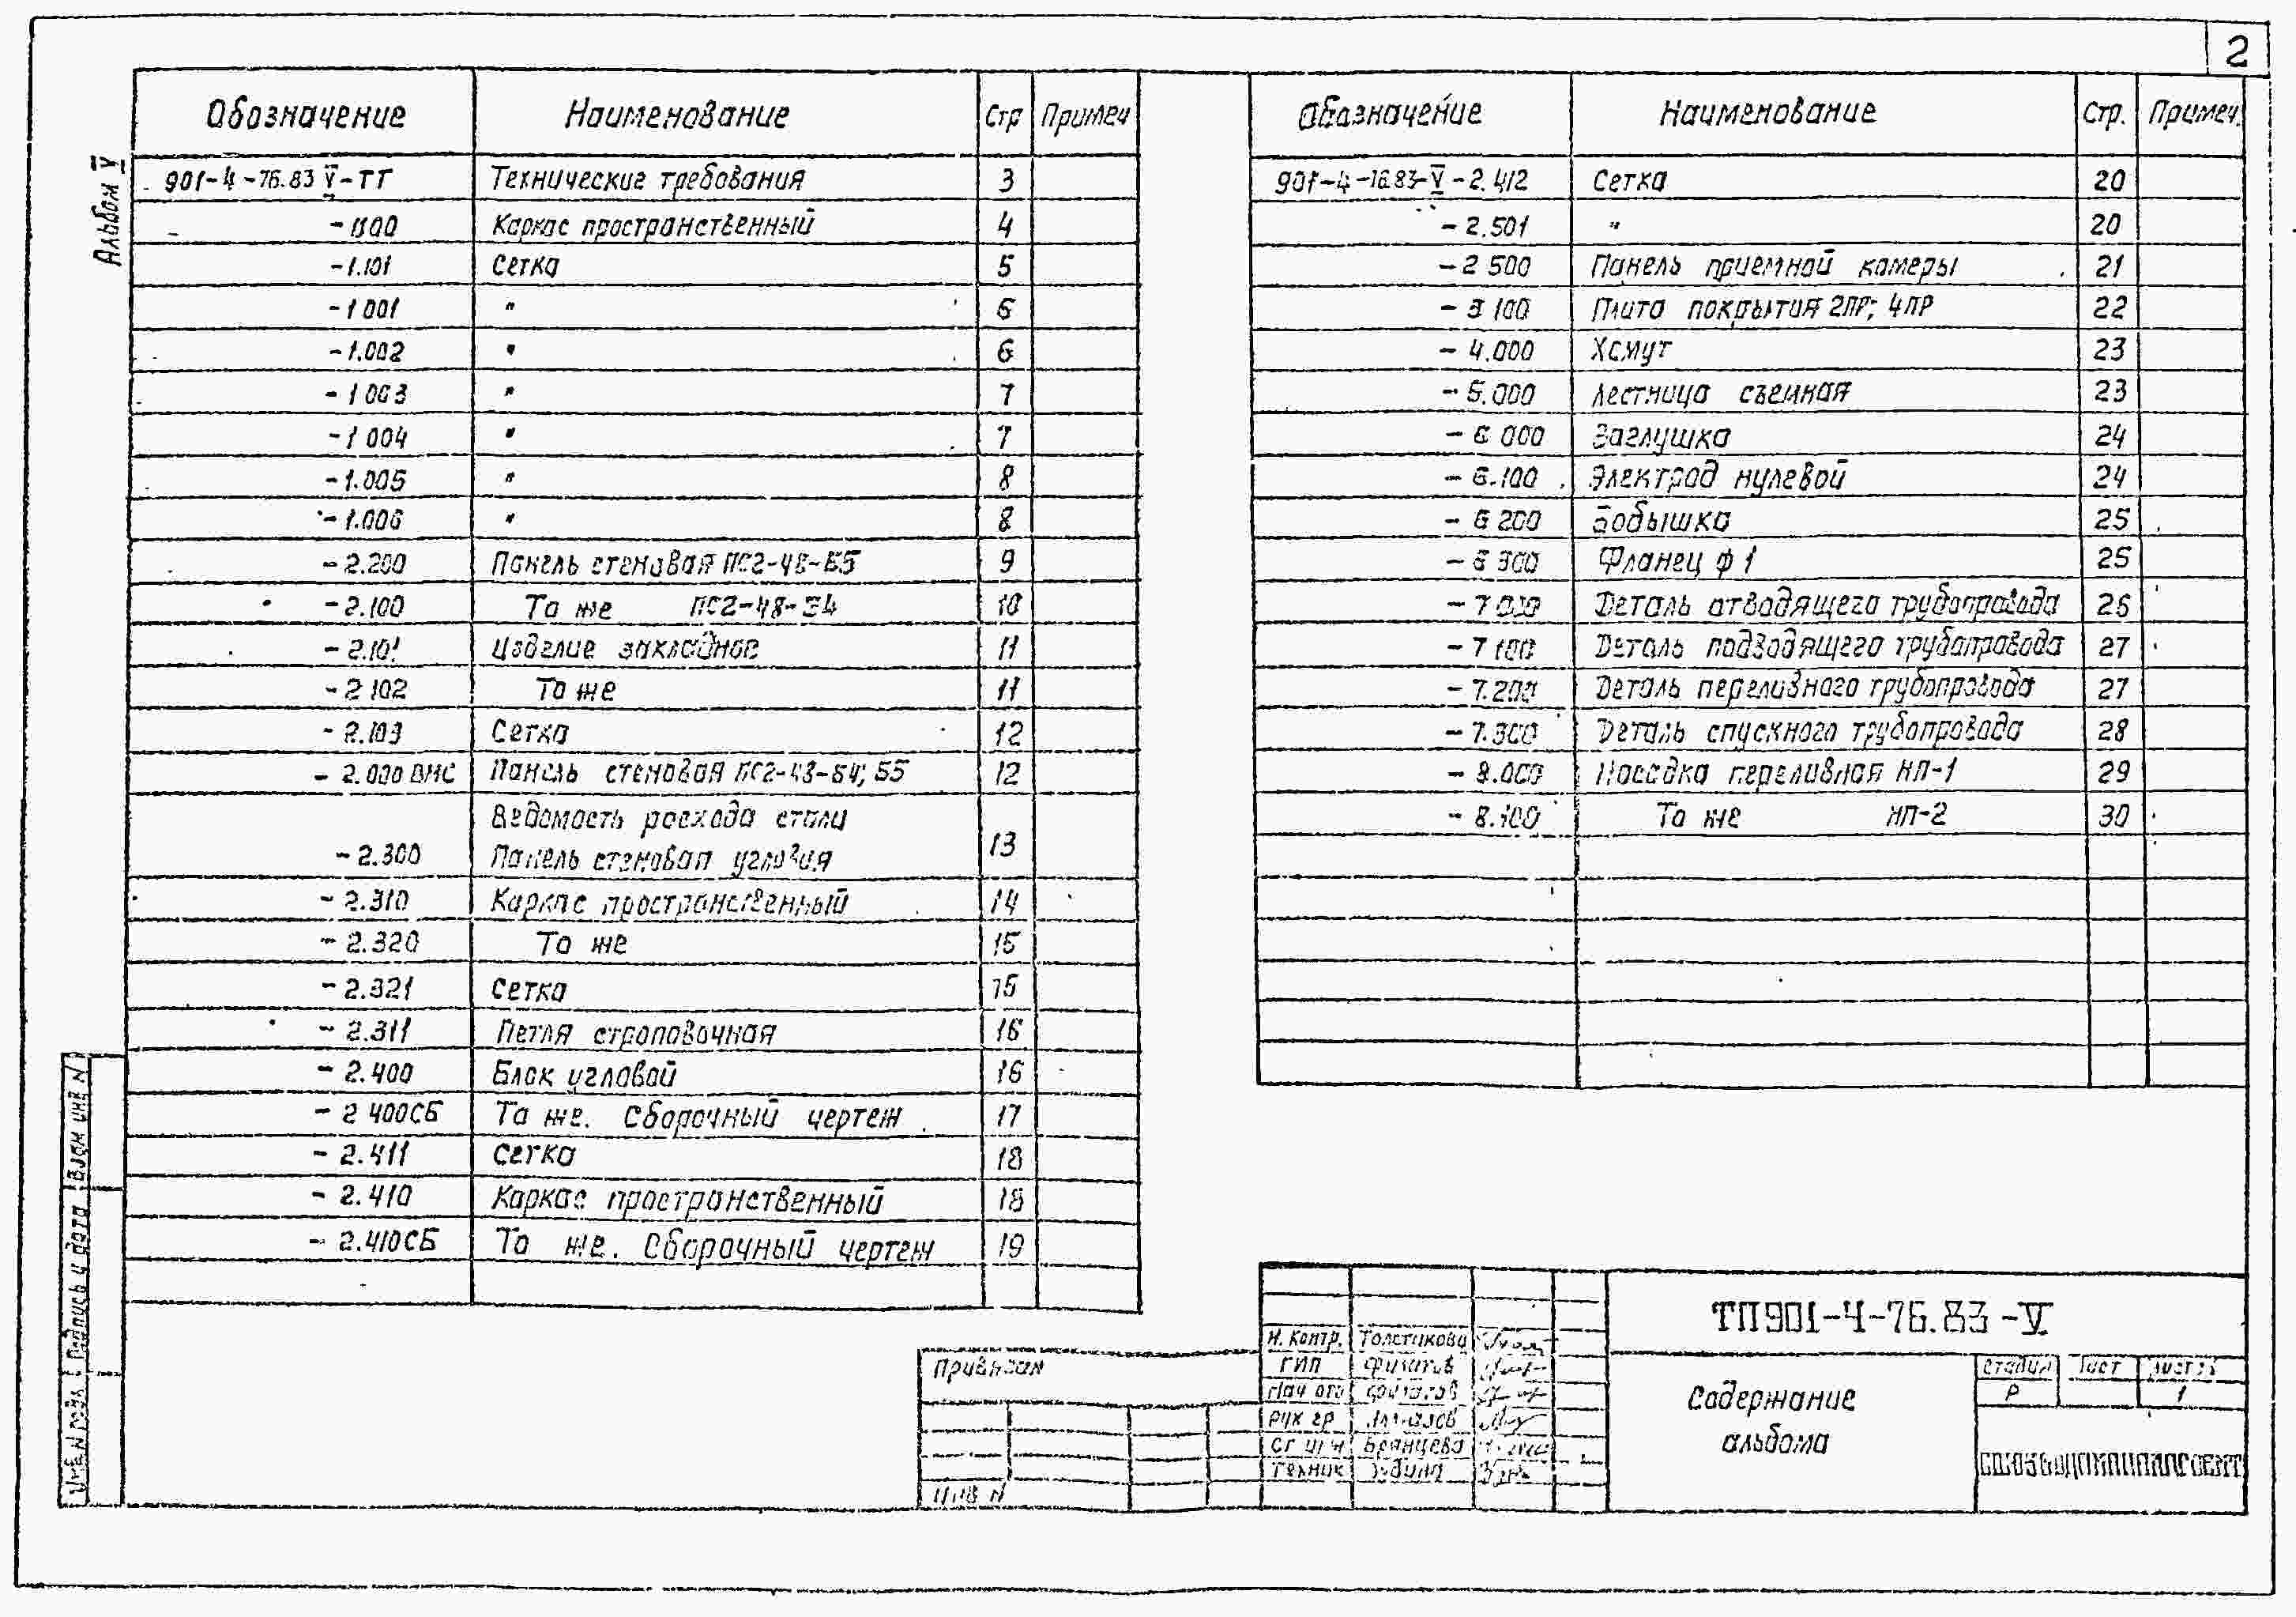 2
Альбом V
Обозначение Наименование Стр Примеч
901-4-76.83 V-ТТ Технические требования 3
Каркас пространственный 4
-1.101 Сетка 5
-1 001 " 6
-1.002 " 6
-1 003 " 7
-1 004 " 7
-1.005 " 8
-1.006 " 8
-2.200 Панель стеновая ПС2-48-Б5 9
-2.100 То же ПС2-48-Б4 10
-2.101 Изделие закладное 11
-2 102 То же 11
-2.103 Сетка 12
-2.000 ВМС Панель стеновая ПС2-48-Б4; Б5 12
Ведомость расхода стали
-2.300 Панель стеновая угловая 13
-2.310 Каркас пространственный 14
-2.320 То же 15
-2.321 Сетка 15
-2.311 Петля строповочная 16
-2.400 Блок угловой 16
-2 400СБ То же. Сборочный чертеж 17
-2.411 Сетка 18
-2.410 Каркас пространственный 18
-2.410СБ То же. Сборочный чертеж 19
Обозначение Наименование Стр. Примеч.
901-4-76.83-V-2.412 Сетка 20
-2.501 " 20
-2 500 Панель приемной камеры 21
-3 100 Плита покрытия 2ПР; 4ПР 22
-4.000 Хомут 23
-5.000 Лестница съемная 23
-6 000 Заглушка 24
-6.100 Электрод нулевой 24
-6 200 Бобышка 25
-6 300 Фланец ф 1 25
-7 000 Деталь отводящего трубопровода 26
-7 100 Деталь подводящего трубопровода 27
-7.200 Деталь переливного трубопровода 27
-7.300 Деталь спускного трубопровода 28
-8.000 Насадка переливная НП-1 29
-8.100 То же НП-2 30
Взам инв N
Подпись и дата
Инв. N подл.
Привязан
Инв N
Н. контр. Толстикова
ГИП Филатов
Нач отд Филатов
Рук гр
Ст инж Брянцева
Техник
ТП901-4-76.83-V
Содержание
альбома
Стадия Лист Листов
Р 1
СОЮЗВОДОКАНАЛПРОЕКТ